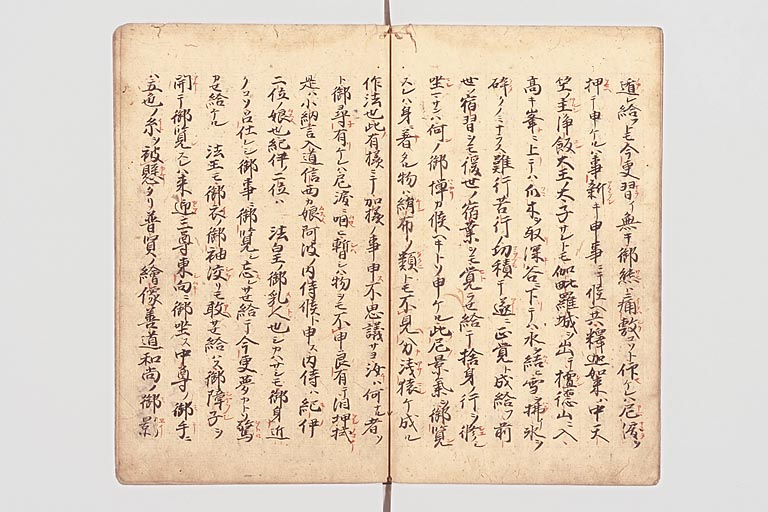 遁レ給フトモ今更習イ無キ御態ハ痛敷コソト作ケレハ尼涙ヲ
押テ申ケルハ事新キ申事ニテ候ヘ共釋迦如來ハ中天
竺ノ主浄飯大王ノ太子ナレトモ伽毗羅城ヲ出テ檀徳山ニ入
高キ峯ニ上テハ爪木ヲ取深谷ニ下テハ水ヲ結ヒ雪ヲ拂ヒ氷ヲ
碎クノミナラス難行苦行ノ功積テ遂ニ正覺ト成給フ前
世ノ宿習ヲモ後世ノ宿業ヲモ覺ラセ給テ捨身ノ行ヲ修シ
坐マサンハ何ノ御憚カ候ヘキトソ申ケル此尼景氣ヲ御覧
スレハ身ニ著タル物ハ絹布ノ類トモ不見分浅猿ケ成ル
作法也此有樣ニテ加樣ノ事申不思議サヨ汝ハ何ナル者ソ
ト御尋有ケレハ尼淚ニ咽ヒ暫シハ物ヲモ不申良有テ淚押拭
是ハ小納言入道信西カ娘阿波ノ内侍候ト申ス内侍ハ紀伊
二位ノ娘也紀伊ノ二位ハ 法皇ノ御乳人也シカハサシモ御身近
ク召仕レシ御事ニ御覧シ忘レサセ給テ今更夢カトソ驚
カセ給ケル 法王モ御衣ノ御袖洨リモ敢サセ給ハス御障子ヲ
開テ御覧スレハ來迎ノ三尊東向ニ御坐ス中尊ノ御手ニ
ハ五色ノ糸ヲ被懸タリ普賢ノ繪像善道和尚ノ御影